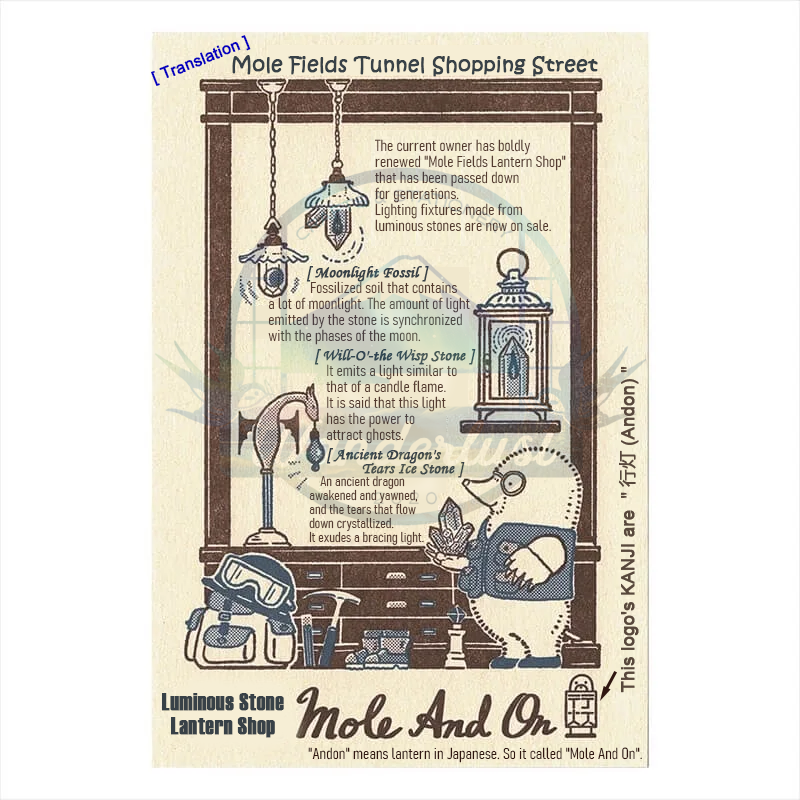 [ Translation ]
Mole Fields Tunnel Shopping Street
The current owner has boldly
renewed "Mole Fields Lantern Shop"
that has been passed down
for generations.
Lighting fixtures made from
luminous stones are now on sale.
[ Moonlight Fossil ]
Fossilized soil that contains
a lot of moonlight. The amount of light
emitted by the stone is synchronized
with the phases of the moon.
[ Will-O'-the Wisp Stone ]
It emits a light similar to
that of a candle flame.
It is said that this light
has the power to
attract ghosts.
[ Ancient Dragon's
Tears Ice Stone ]
An ancient dragon
awakened and yawned,
and the tears that flow
down crystallized.
It exudes a bracing light.
This logo's KANJI are " 行灯 (Andon) "
Luminous Stone
Lantern Shop
Mole And On
行灯
"Andon" means lantern in Japanese. So it called "Mole And On".